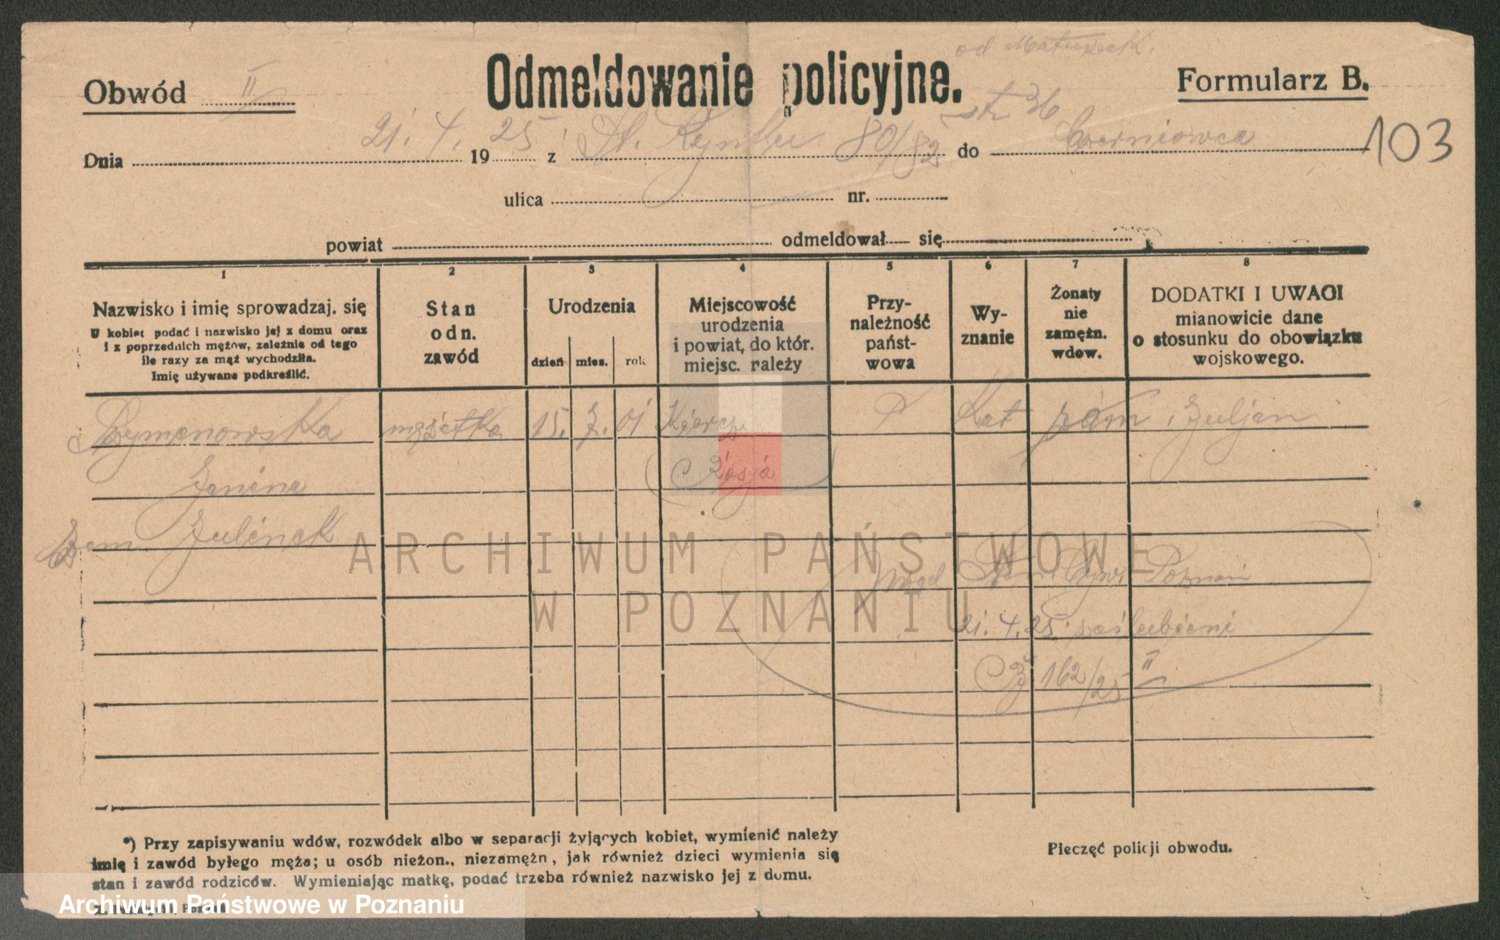 od Matuszak.
Obwód II
Odmeldowanie policyjne.
Formularz B.
str 36
103
Dnia 21. 4. 25 19 z St. Rynku 80/82 do Czerniowca
ulica nr.
powiat odmeldował się
1
2
3
4
5
6
7
8
Nazwisko i imię sprowadzaj. się
U kobiet podać i nazwisko jej z domu oraz
i z poprzednich mężów, zależnie od tego
ile razy za mąż wychodziła.
Imię używane podkreślić.
Stan
odn.
zawód
Urodzenia
dzień mies. rok
Miejscowość
urodzenia
i powiat, do któr.
miejsc. należy
Przy-
należność
państ-
wowa
Wy-
znanie
Żonaty
nie
zamężn.
wdow.
DODATKI I UWAGI
mianowicie dane
o stosunku do obowiązku
wojskowego.
Szymanowska mężatka 15. 7. 01 P Kat zam. Juljan
Janina
Rosja
z dom. Julinek
Urząd St. Cywi Poznań
21. 4. 25 zaślubieni
162/25 II
ARCHIWUM PAŃSTWOWE
W POZNANIU
*) Przy zapisywaniu wdów, rozwódek albo w separacji żyjących kobiet, wymienić należy
imię i zawód byłego męża; u osób nieżon., niezamężn, jak również dzieci wymienia się
stan i zawód rodziców. Wymieniając matkę, podać trzeba również nazwisko jej z domu.
Pieczęć policji obwodu.
Archiwum Państwowe w Poznaniu